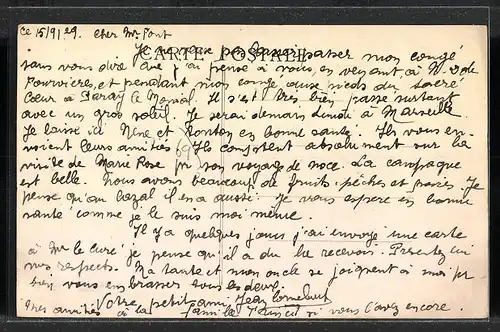 ce 15/9129. Cher Mr Pont
CARTE POSTALE
Je ne veux pas laisser passer mon congé
sans vous dire que j'ai pensé à vous, en venant, à N. D de
Fourvières, et pendant mon congé aux pieds du Sacré
Cœur à Paray le Monial. Il s'est très bien passé surtout
avec un gros soleil. Je serai demain lundi à Marseille.
Je laisse ici Nené et Tonton en bonne santé. Ils vous en-
voient leurs amitiés. Ils comptent absolument sur la
visite de Marie Rose pr son voyage de noce. La campagne
est belle. Nous avons beaucoup de fruits : pêches et poires. Je
pense qu'au Cazal il en a aussi. Je vous espère en bonne
santé comme je le suis moi même.
Il y a quelques jours j'ai envoyé une carte
à Mr le curé je pense qu'il a du la recevoir. Présentez lui
mes respects. Ma tante et mon oncle se joignent à moi pr
bien vous embrasser tous les deux.
Votre petit ami Jean
Mes amitiés à la famille si vous l'avez encore.